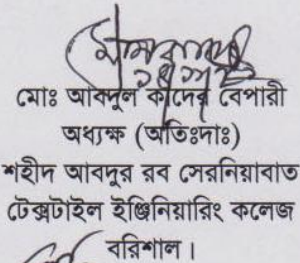 মোঃ আবদুল কাদের বেপারী
অধ্যক্ষ (অতিঃদাঃ)
শহীদ আবদুর রব সেরনিয়াবাত
টেক্সটাইল ইঞ্জিনিয়ারিং কলেজ
বরিশাল।